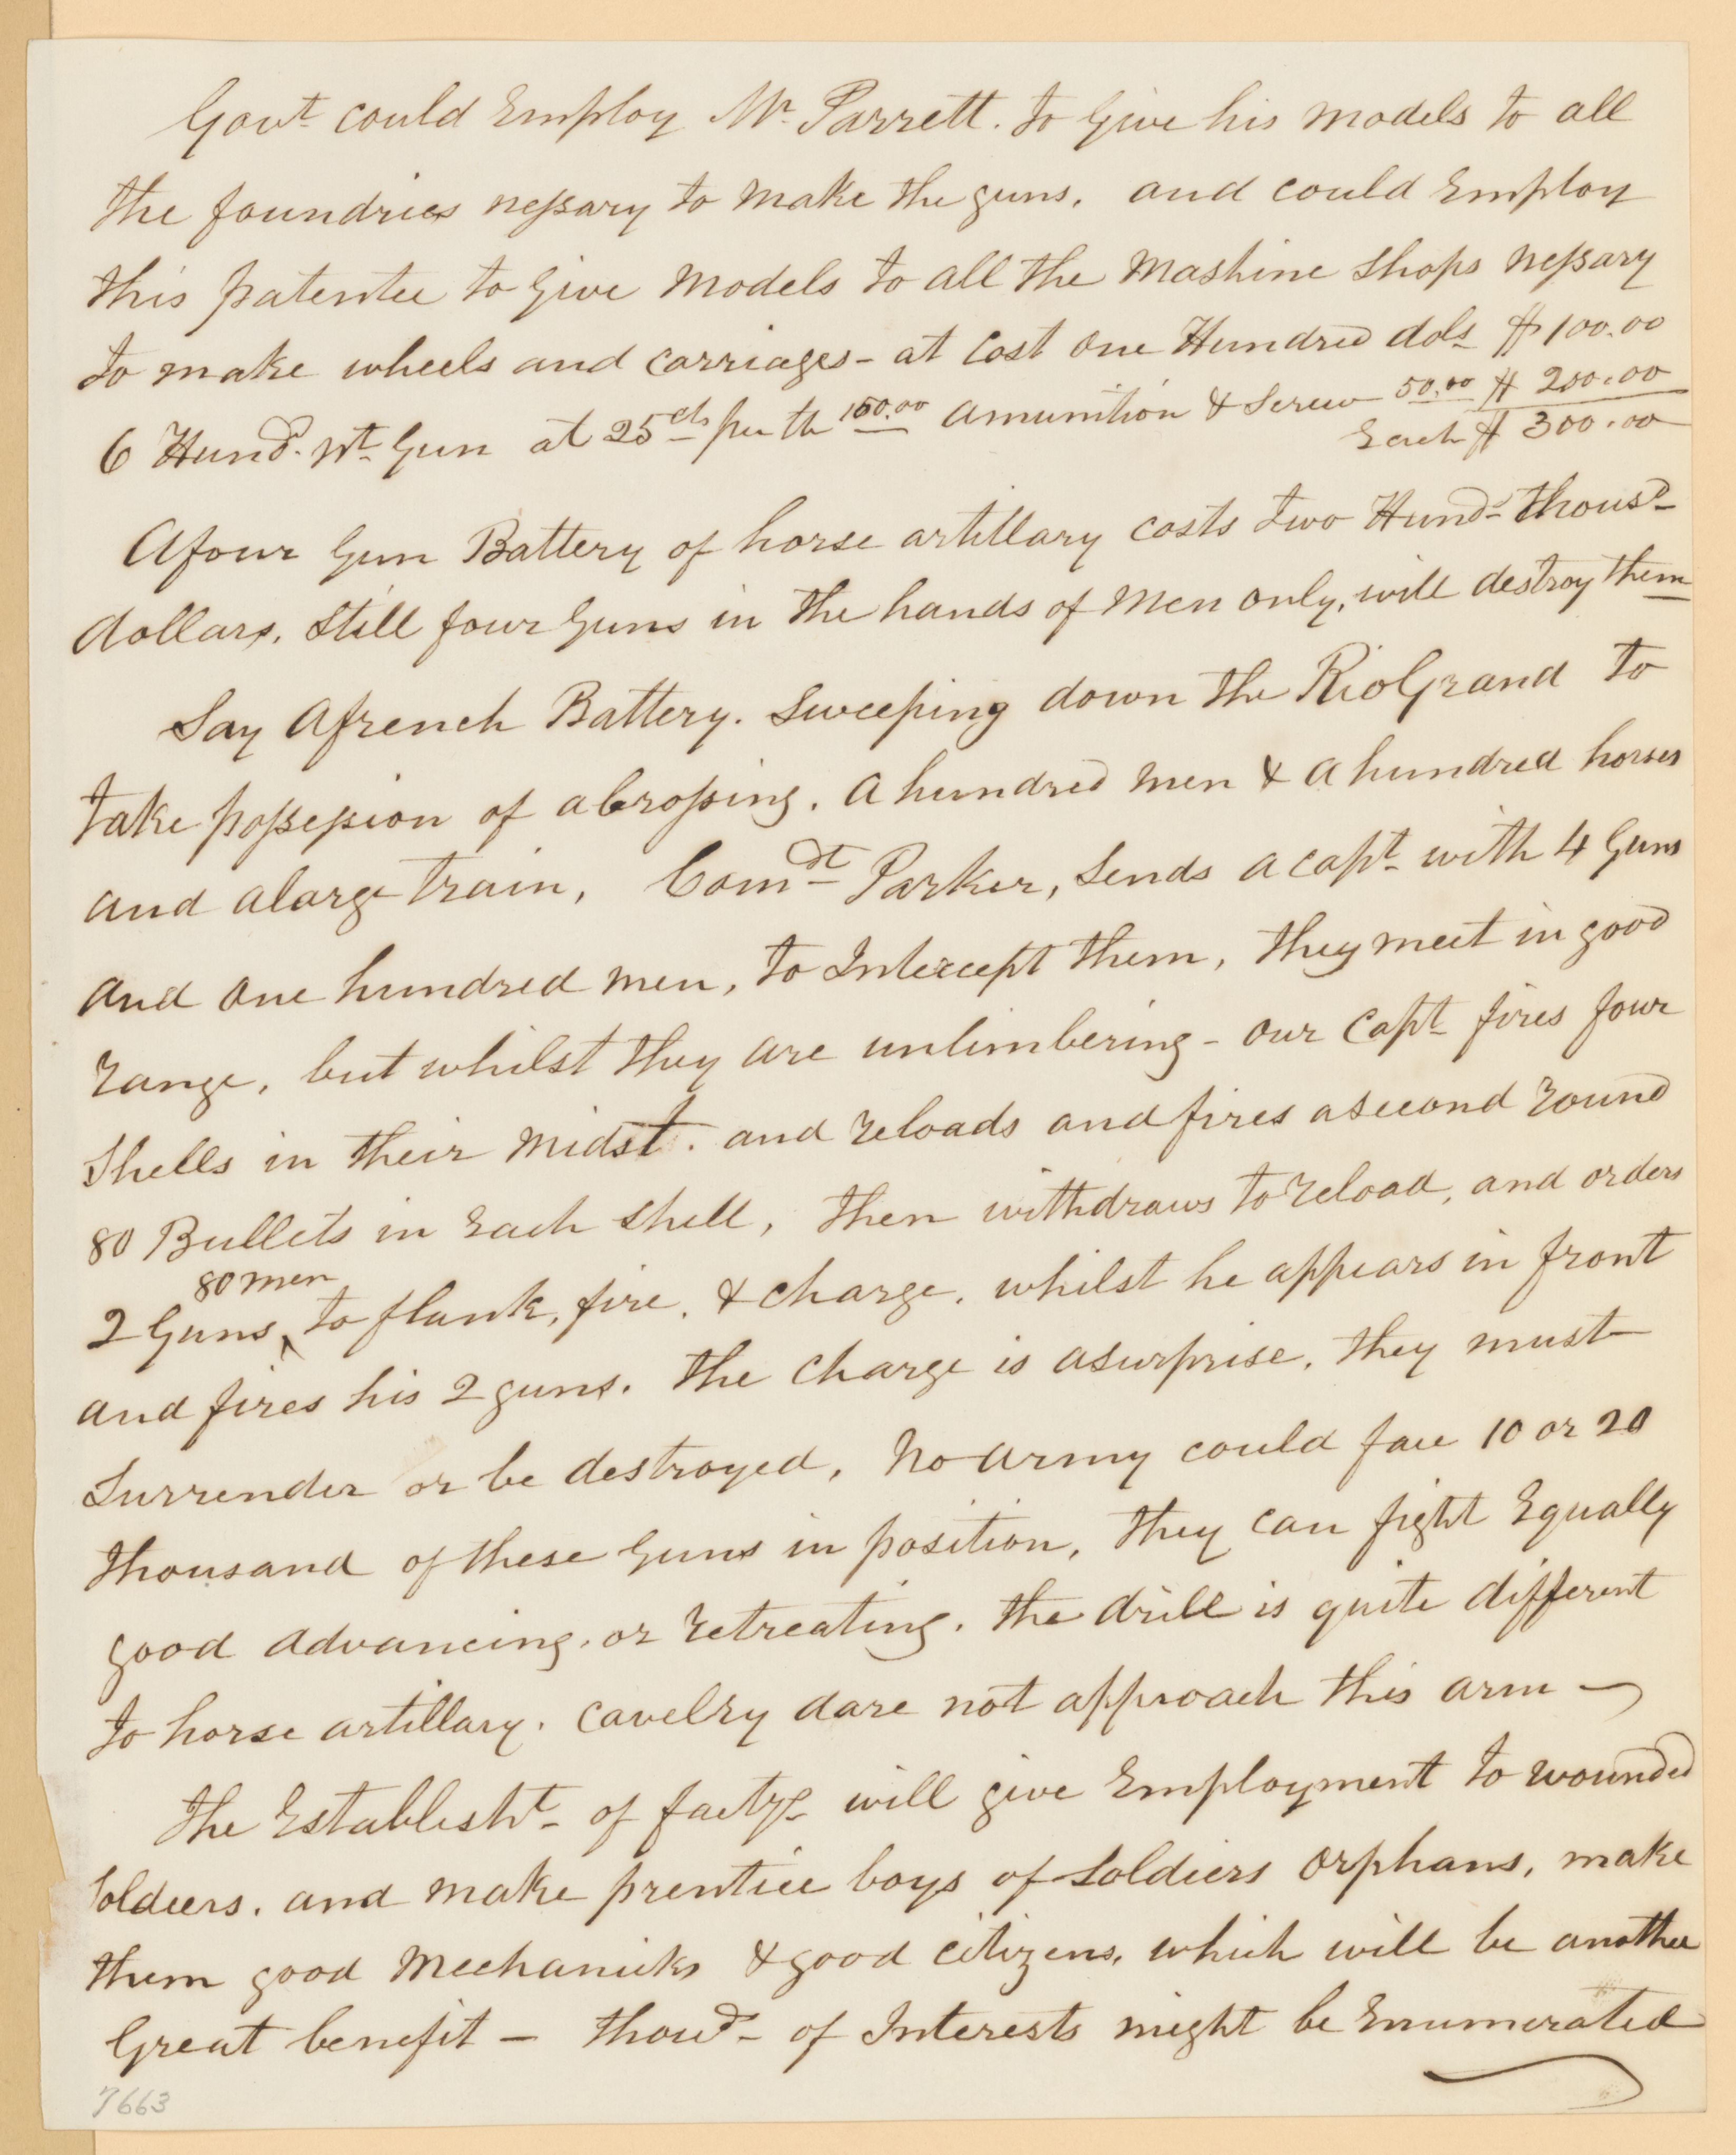 Govt. could Employ Mr. Parrett. to Give his models to all
the foundries nessary to make the guns, and could Employ
this patentee to Give models to all the mashine shops nessary
to make wheels and carriages - at Cost One Hundred dols $100.00
6 Hund. Wt. Gun at 25 cts per lb 150.00 amunition & Screw 50.00 $ 200.00
Each $ 300.00
A four Gun Battery of horse artillary costs two Hund. thousd.
dollars, still four Guns in the hands of men only, will destroy them
Say A french Battery. Sweeping down the Rio Grand to
take possession of a Crossing. A hundred men & A hundred horses
and a large train, Comdt Parker, sends a capt. with 4 Guns
and One hundred men, to Intercept them, they meet in good
range, but whilst they are unlimbering - our Capt fires four
shells in their midst. and reloads and fires a second round
80 Bullets in Each shell, then withdraws to reload, and orders
80 men
2 Guns ‸ to flank, fire, & charge, whilst he appears in front
and fires his 2 guns. the Charge is a surprise, they must
Surrender or be destroyed, No army could face 10 or 20
thousand of these Guns in position, they can fight Equally
good advancing, or retreating. the drill is quite different
to horse artillary. Cavelry dare not approach this arm -
The Establisht. of factys. will give Employment to wounded
soldiers. and make prentice boys of soldiers orphans, make
them good mechanicks & good citizens, which will be another
Great benefit - Thousd. of Interests might be Enumerated
7663